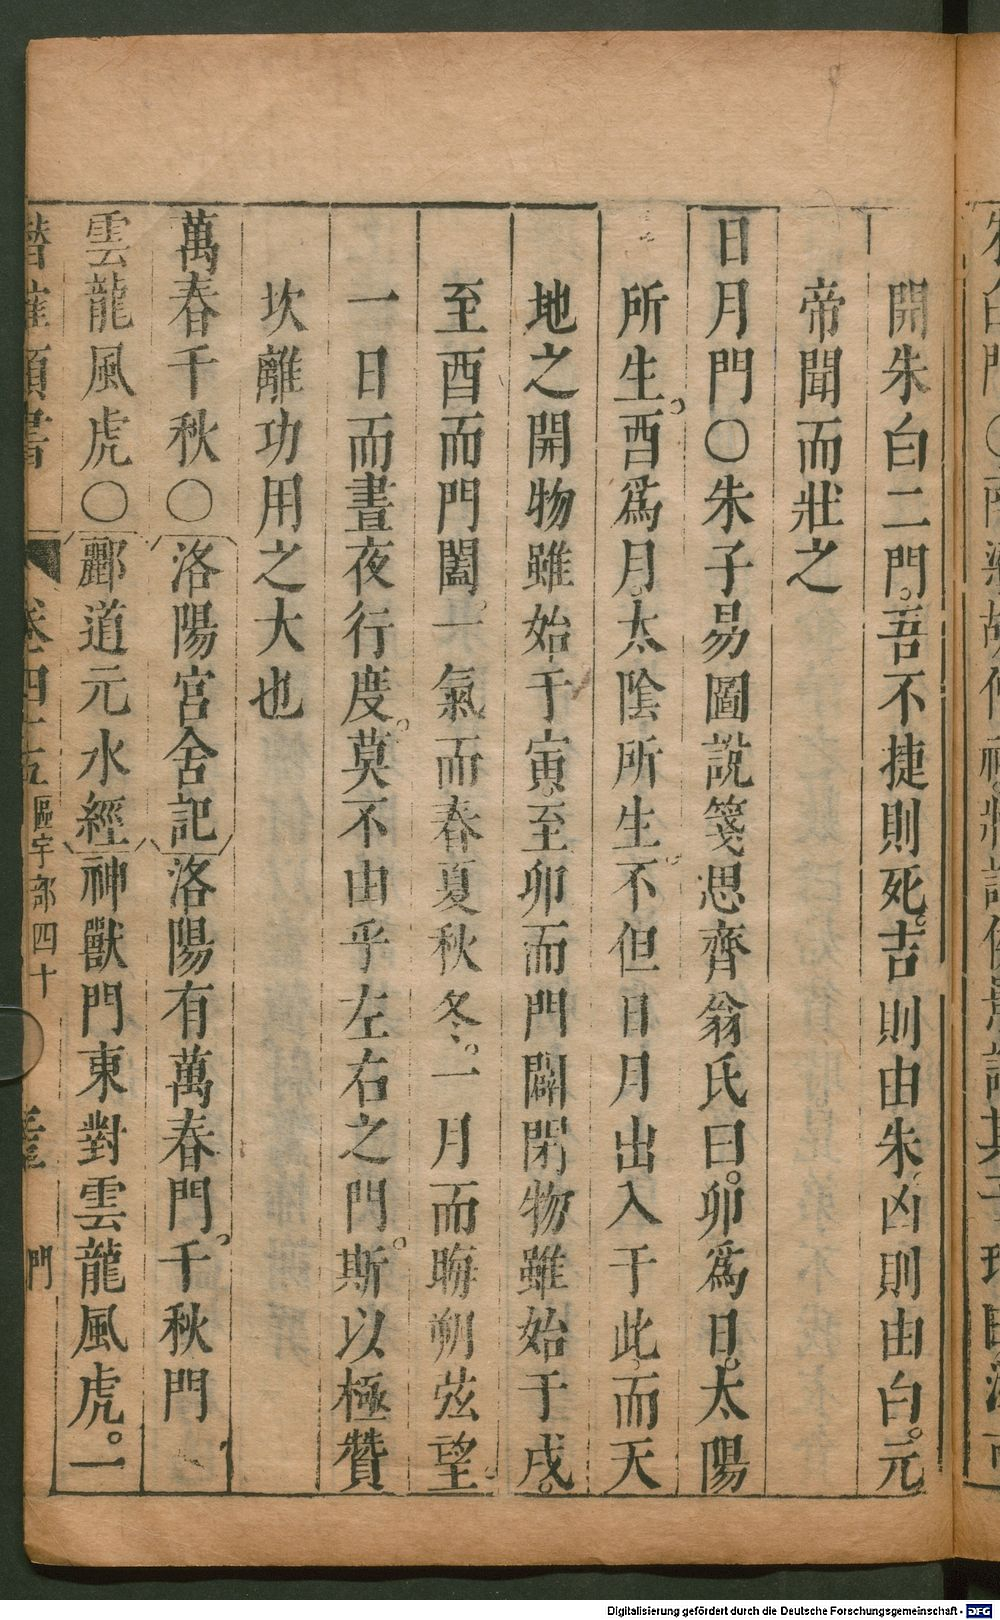 開朱白二門。吾不捷則死。吉則由朱、凶則由白。元
帝聞而壯之
日月門〇朱子易圖説箋思齊翁氏曰。卯爲日。太陽
所生。酉爲月。太陰所生。不但日月出入于此、而天
地之開物雖始于寅。至卯而門闢閉物雖始于戌。
至酉而門闔。一氣而春夏秋冬。一月而晦朔弦望。
一日而晝夜行度。莫不由乎左右之門。斯以極贊
坎離功用之大也
萬春千秋〇洛陽宮舍記洛陽有萬春門。千秋門
雲龍風虎〇酈道元水經神獸門東對雲龍風虎。一
潛確類書
卷四十五
區宇部四十
門
Digitalisierung gefördert durch die Deutsche Forschungsgemeinschaft - DFG